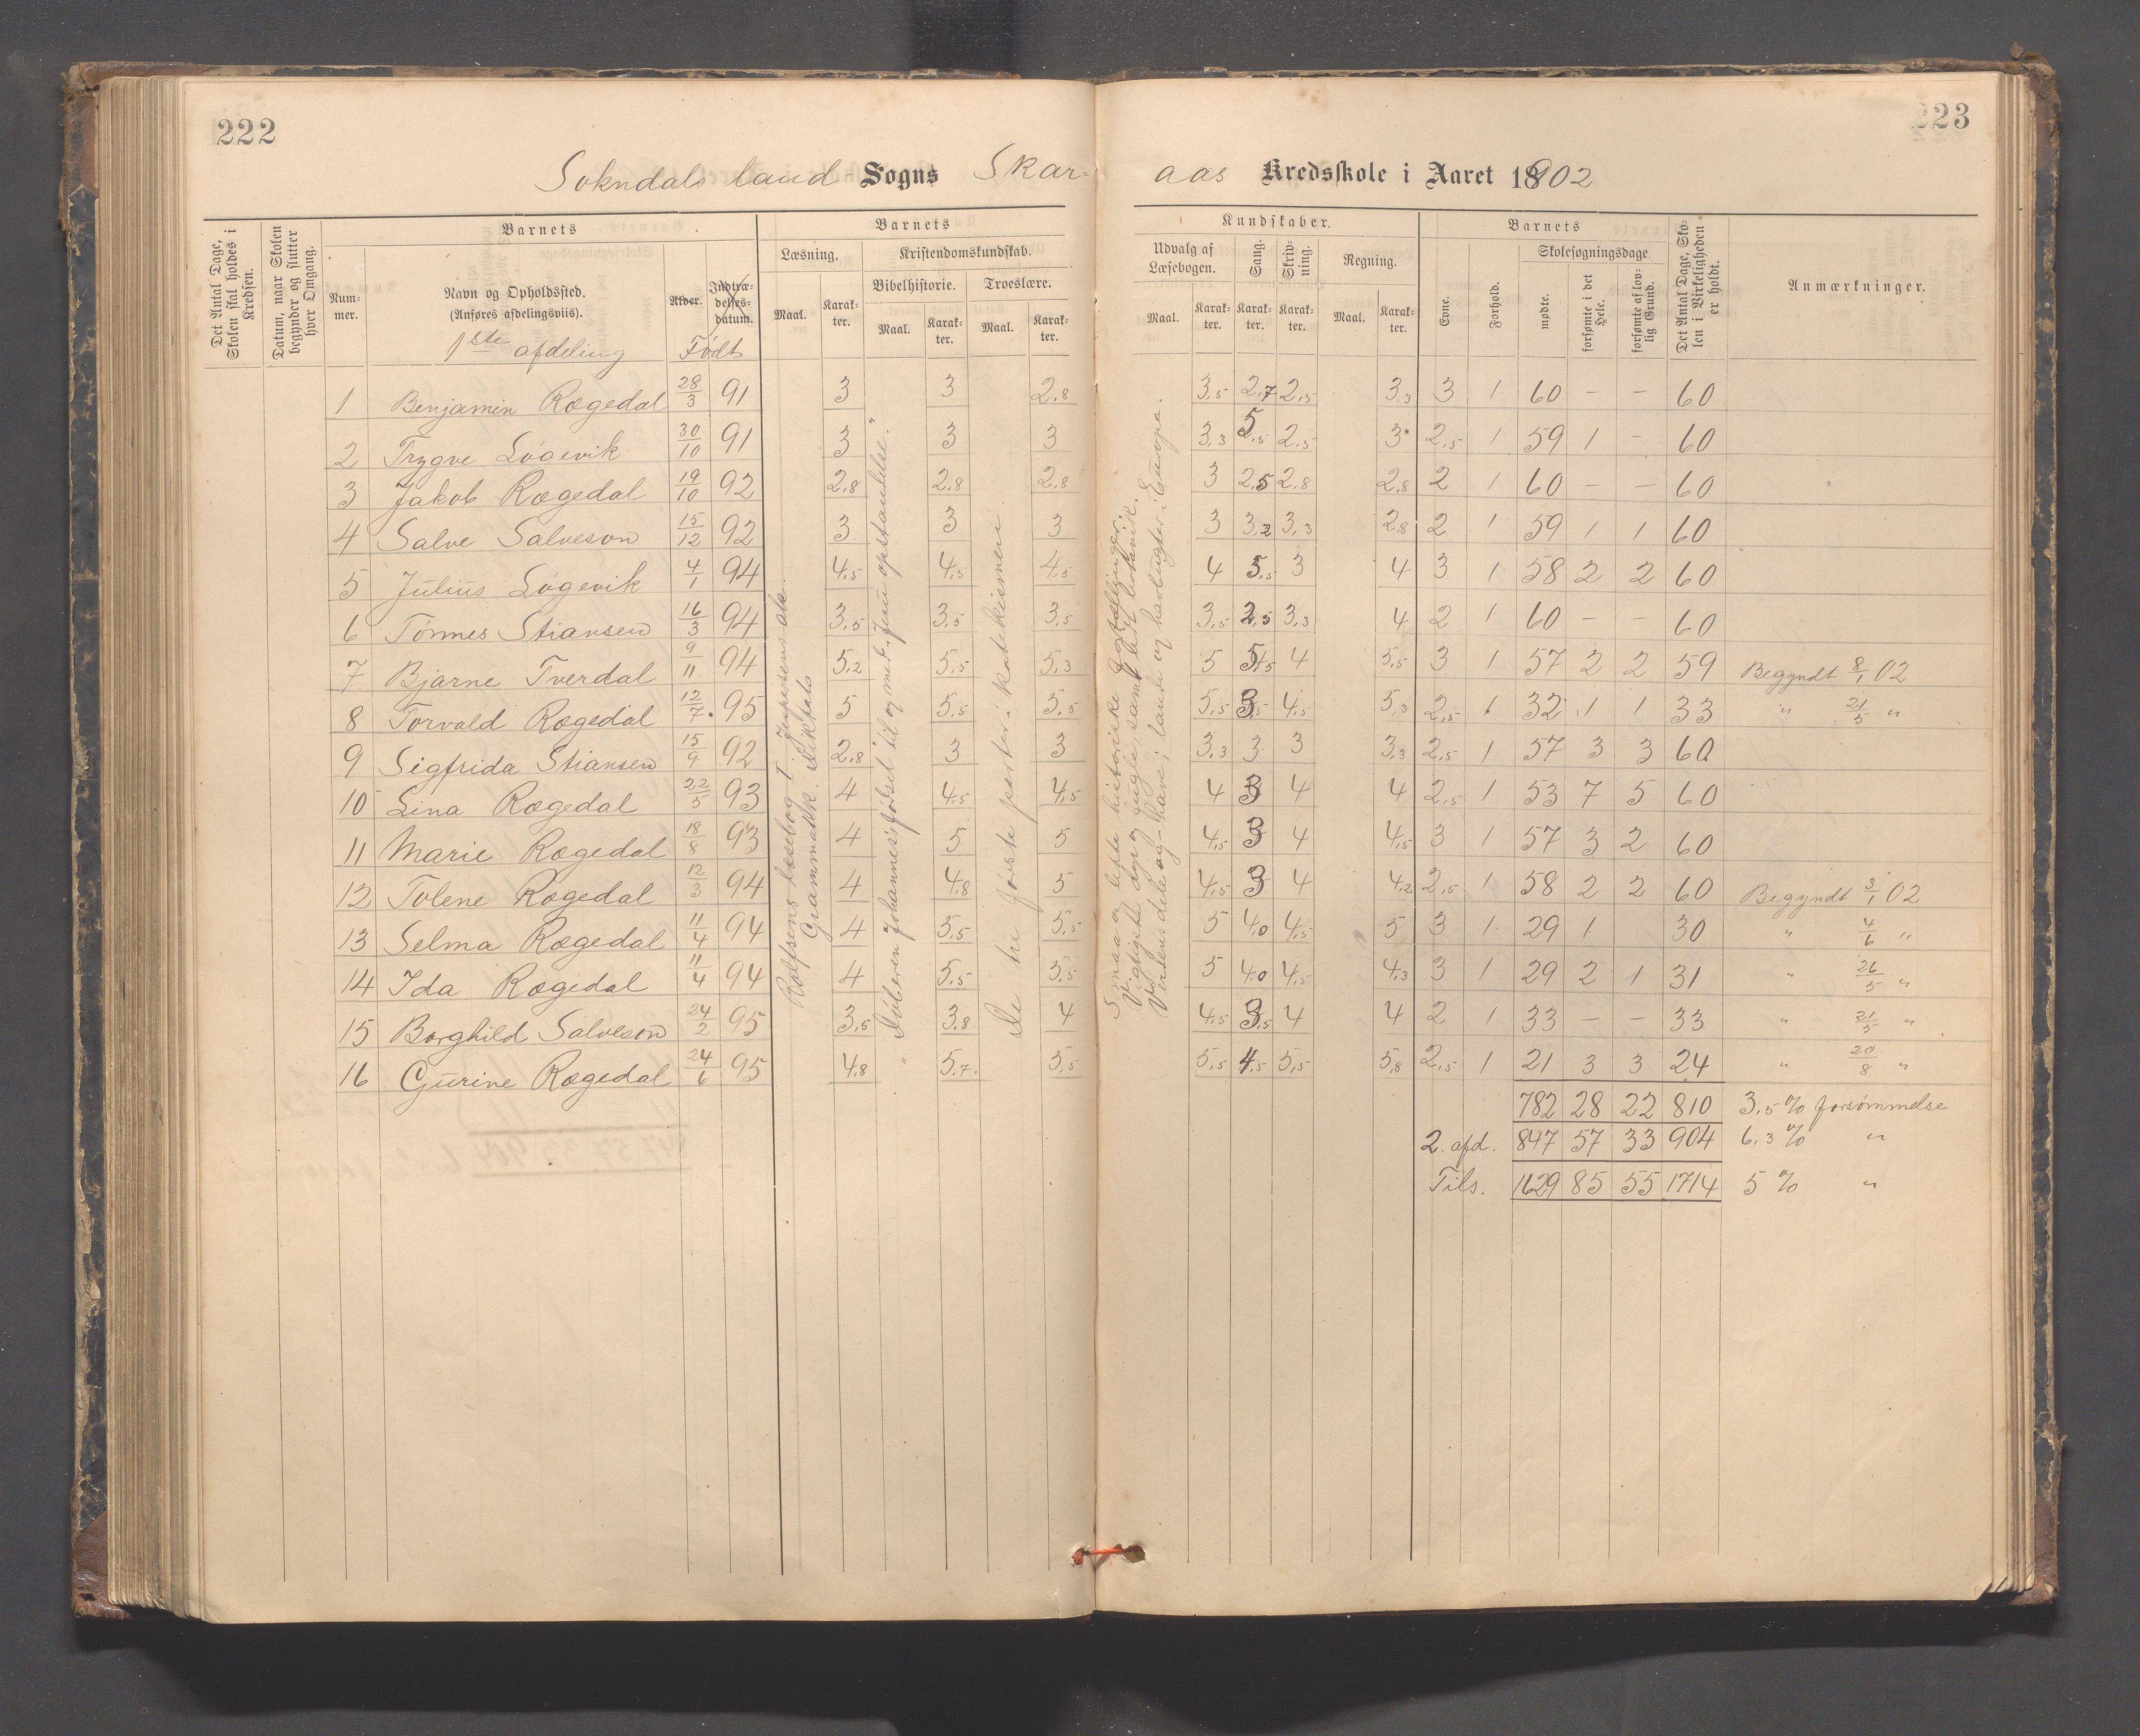 222
223
Sokndals land Sogns Skar-
aas Kredsskole i Aaret 18902
Det Antal Dage, Skolen skal holdes i Kredsen.
Datum, naar Skolen begynder og slutter hver Omgang.
Barnets
Num-
mer.
Navn og Opholdssted.
(Anføres afdelingsviis).
1ste afdeling
Alder.
Indtræ-
delses-
datum.
Født
Barnets
Læsning.
Kristendomskundskab.
Bibelhistorie.
Troeslære.
Maal. Karak-
ter. Maal. Karak-
ter. Maal. Karak-
ter.
Kundskaber.
Udvalg af
Læsebogen.
Sang.
Skriv-
ning.
Regning.
Maal. Karak-
ter. Karak-
ter. Karak-
ter. Maal. Karak-
ter.
Barnets
Evne.
Forhold.
Skolesøgningsdage.
mødte.
forsømte i det Hele.
forsømte af lov-
lig Grund.
Det Antal Dage, Sko-
len i Virkeligheden
er holdt.
Anmærkninger.
1 Benjamin Rægedal 28/3 91 3 3 2,8 3,5 2,7 2,5 3,3 3 1 60 — — 60
2 Trygve Løgevik 30/10 91 3 3 3 3,3 5,5 2,5 3 2,5 1 59 1 - 60
3 Jakob Rægedal 19/10 92 2,8 2,8 2,8 3 2,5 2,8 2,8 2 1 60 — — 60
4 Salve Salveson 15/12 92 3 3 3 3 3,2 3,3 2,8 2 1 59 1 1 60
5 Julius Løgevik 4/1 94 4,5 4,5 4,5 4 5,5 3 4 3 1 58 2 2 60
6 Tønnes Stiansen 16/3 94 3,5 3,5 3,5 3,5 2,5 3,3 4 2 1 60 - - 60
7 Bjarne Tverdal 9/11 94 5,2 5,5 5,3 5 4 5,5 3 1 57 2 2 59 Begyndt 8/1 02
8 Torvald Rægedal 12/7 95 5 5,5 5,5 5,5 4,5 5,3 2,5 1 32 1 1 33 " 21/5 "
9 Sigfrida Stiansen 15/9 92 2,8 3 3 3,3 3 3 3,3 2,5 1 57 3 3 60
10 Lina Rægedal 22/5 93 4 4,5 4,5 4 3 4 4 2,5 1 53 7 5 60
11 Marie Rægedal 18/8 93 4 5 5 4,5 3 4 4,5 3 1 57 3 2 60
12 Tolene Rægedal 12/3 94 4 4,8 5 4,5 3 4 4,2 2,5 1 58 2 2 60 Begyndt 3/1 02
13 Selma Rægedal 11/4 94 4 5,5 5,5 5 4,0 4,5 5 3 1 29 1 30 " 4/6 "
14 Ida Rægedal 11/4 94 4 5,5 5,5 5 4,0 4,5 4,3 3 1 29 2 1 31 " 26/5 "
15 Borghild Salveson 24/2 95 3,5 3,8 4 4,5 3,5 4 4 2 1 33 — — 33 " 21/5 "
16 Gurine Rægedal 24/6 95 4,8 5,7 5,5 5,5 4,5 5,5 5,8 2,5 1 21 3 3 24 " 20/8 "
782 28 22 810 3,5 % forsømmelse
2. afd. 847 57 33 904 6,3 % "
Tils. 1629 85 55 1714 5 % "
Rolfsens læsebog I. Jespersens
Grammatik. Diktats
"Døberen Johannes's fødsel" til og med "Jesu opstandelse".
De tre første parter i katekismen.
Smaa og lette historiske fortællinger.
Vigtigste dyr og fugle samt lidt botanik.
Verdensdele og -have; lande og havbugter i Europa.